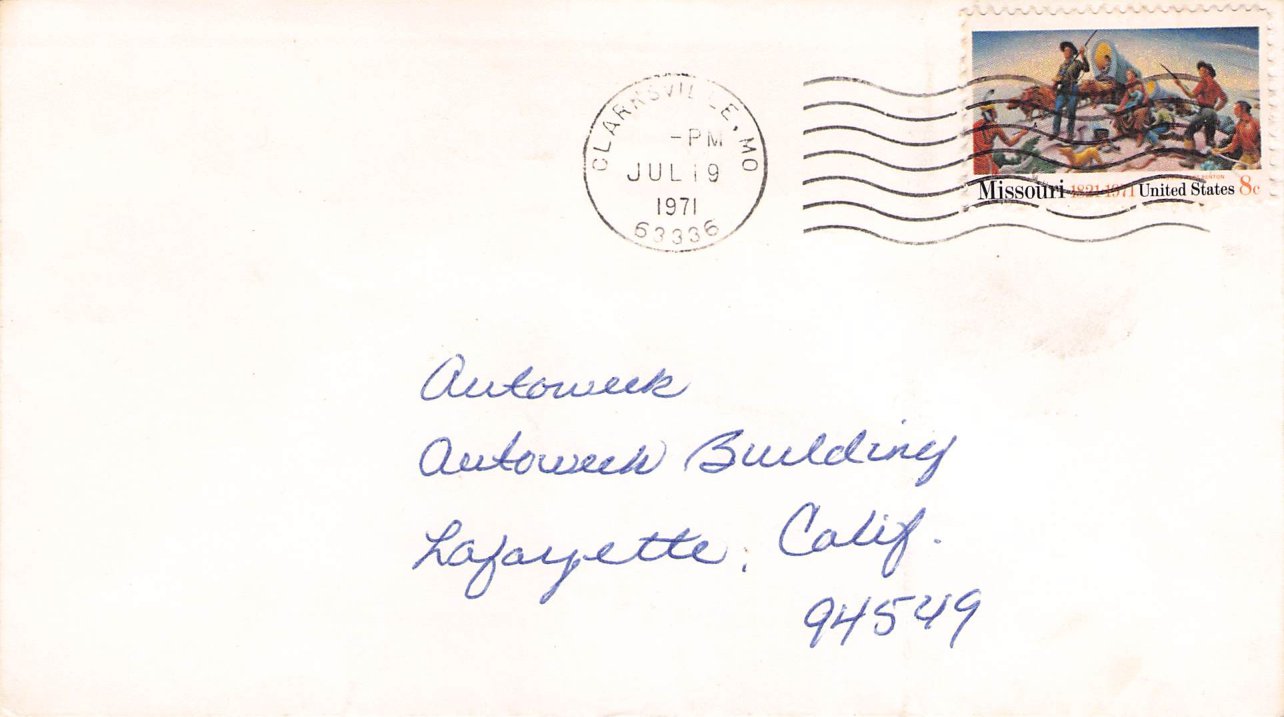 CLARKSVILLE, MO
-PM
JUL 19
1971
63336
Missouri 1821-1971 United States 8c
Autoweek
Autoweek Building
Lafayette, Calif.
94549